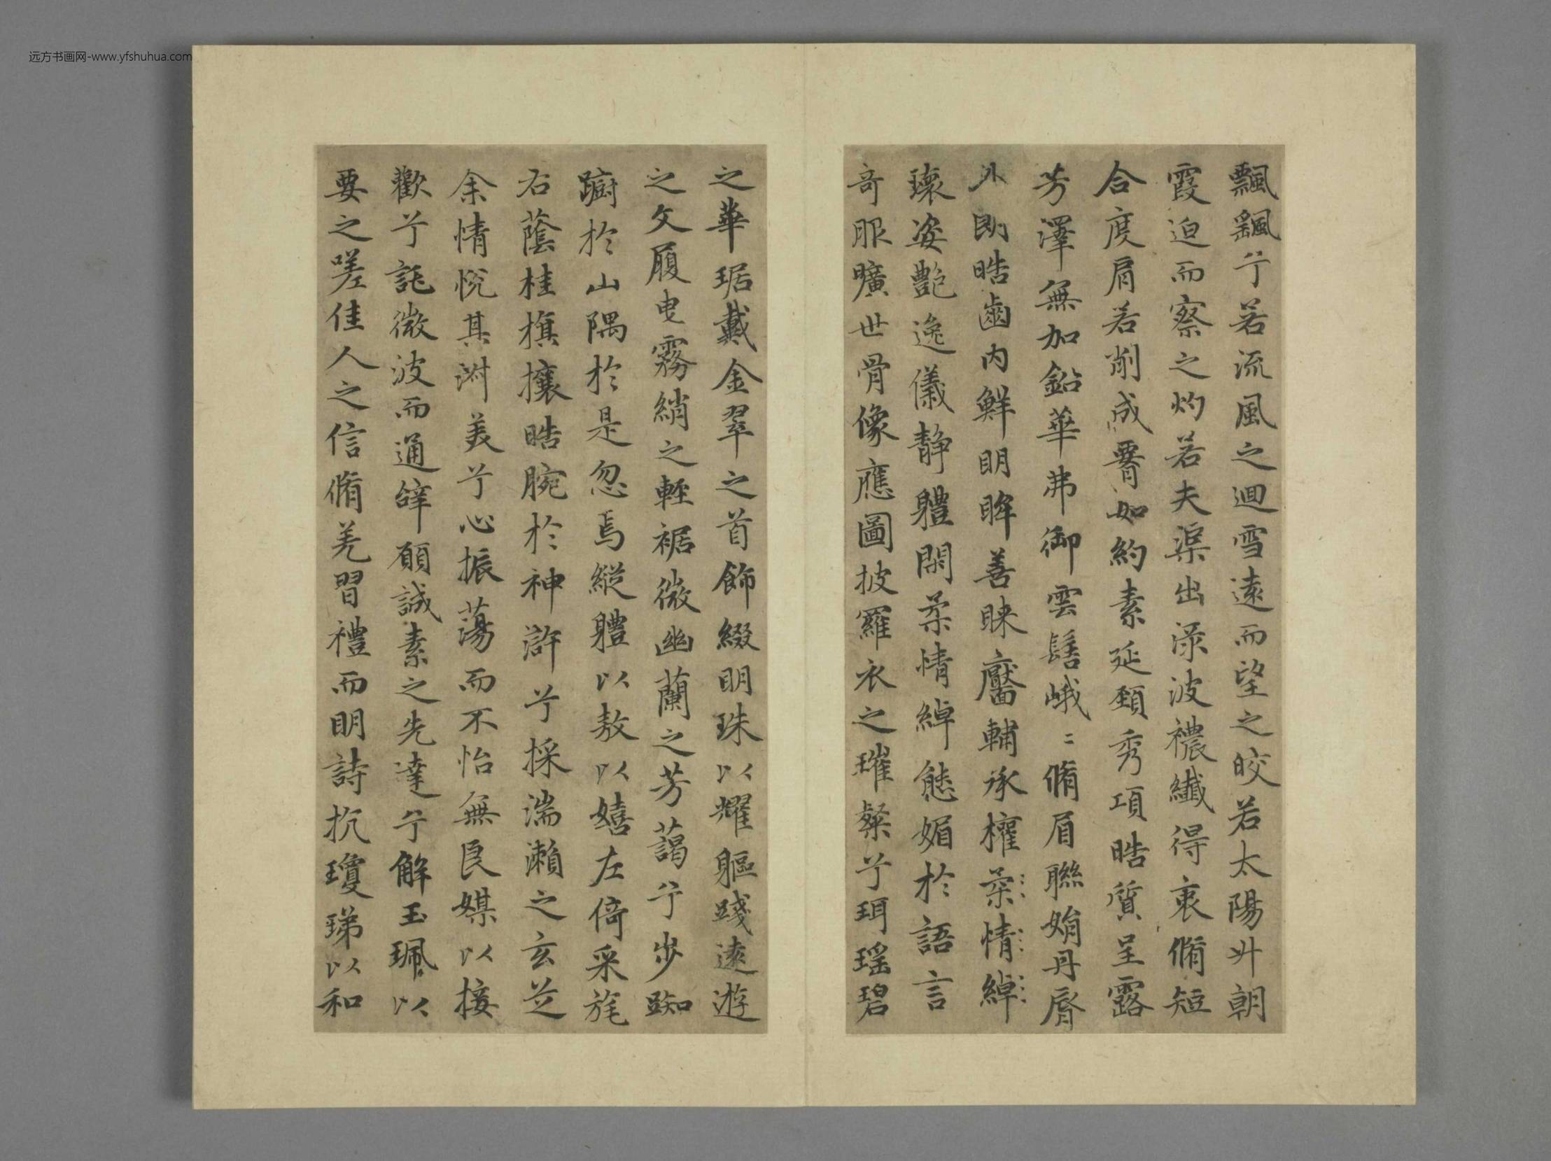 远方书画网-www.yfshuhua.com
飄飖兮若流風之迴雪遠而望之皎若太陽升朝
霞迫而察之灼若夫渠出渌波襛纖得衷脩短
合度肩若削成署如約素延頸秀項晧質呈露
芳澤無加鉛華弗御雲髻峨〻脩眉聯娟丹脣
外朗晧齒内鮮明眸善睞靨輔承權柔情綽
瓌姿艷逸儀靜體閑柔情綽態媚於語言
奇服曠世骨像應圖披羅衣之璀粲兮珥瑤碧
之華琚戴金翠之首飾綴明珠以耀軀踐遠遊
之文履曳霧綃之輕裾微幽蘭之芳藹兮步踟
躕於山隅於是忽焉縱體以敖以嬉左倚采旄
右蔭桂旗攘晧腕於神滸兮採湍瀨之玄芝
余情悅其淑美兮心振蕩而不怡無良媒以接
歡兮託微波而通辭願誠素之先達兮解玉珮以
要之嗟佳人之信脩羌習禮而明詩抗瓊珶以和